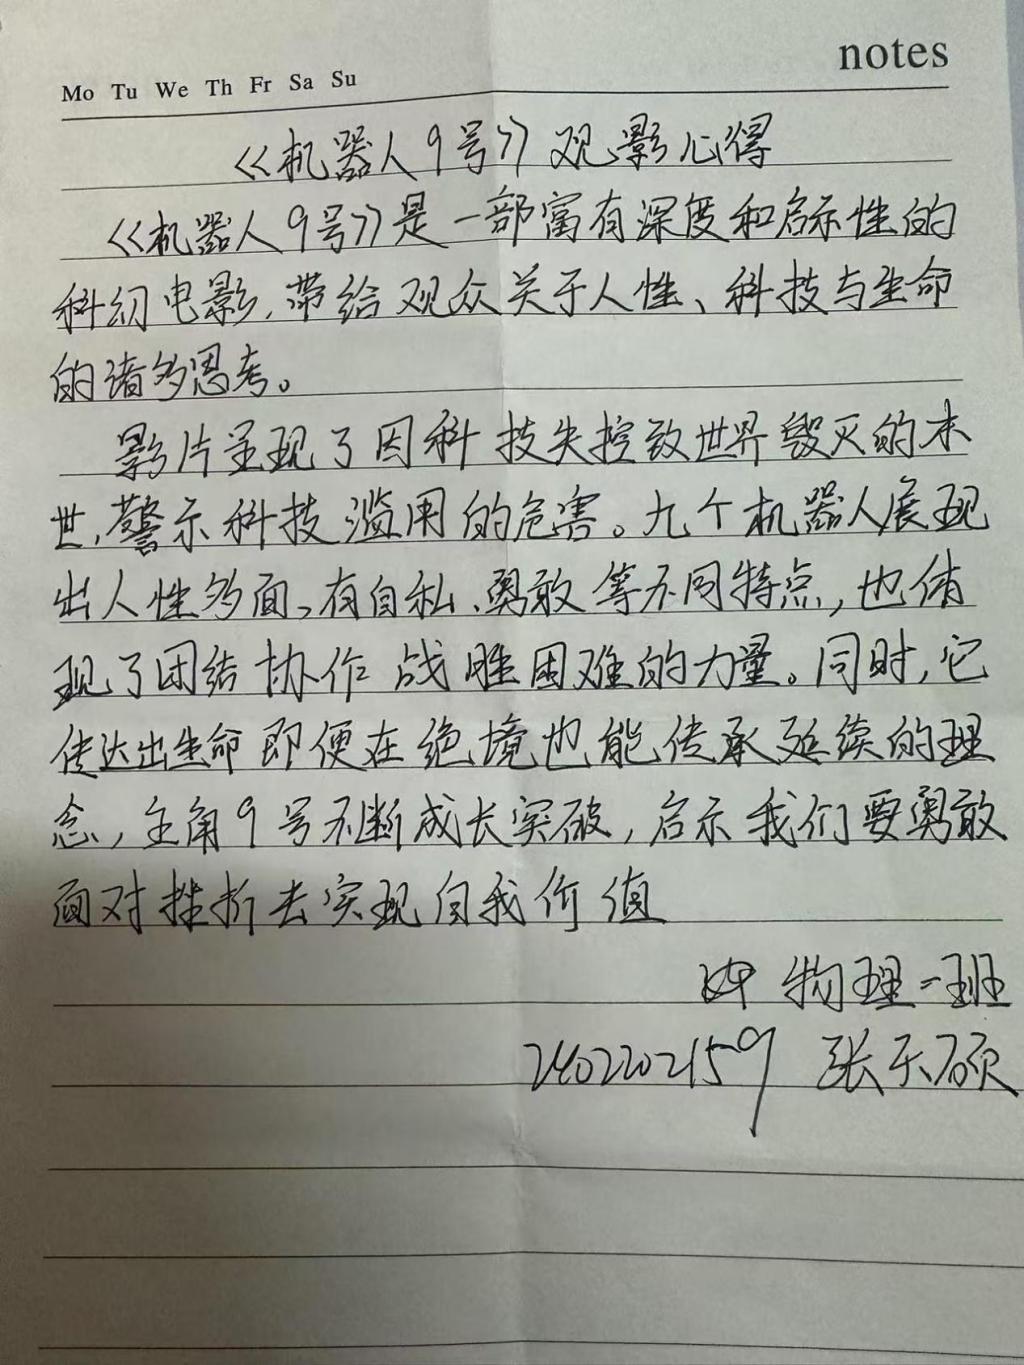 notes
Mo Tu We Th Fr Sa Su
《机器人9号》观影心得
《机器人9号》是一部富有深度和启示性的
科幻电影,带给观众关于人性、科技与生命
的诸多思考。
影片呈现了因科技失控致世界毁灭的末
世,警示科技滥用的危害。九个机器人展现
出人性多面、有自私、勇敢等不同特点,也体
现了团结协作战胜困难的力量。同时,它
传达出生命即便在绝境也能传承延续的理
念,主角9号不断成长突破,启示我们要勇敢
面对挫折去实现自我价值
物理一班
2402202159 张天硕